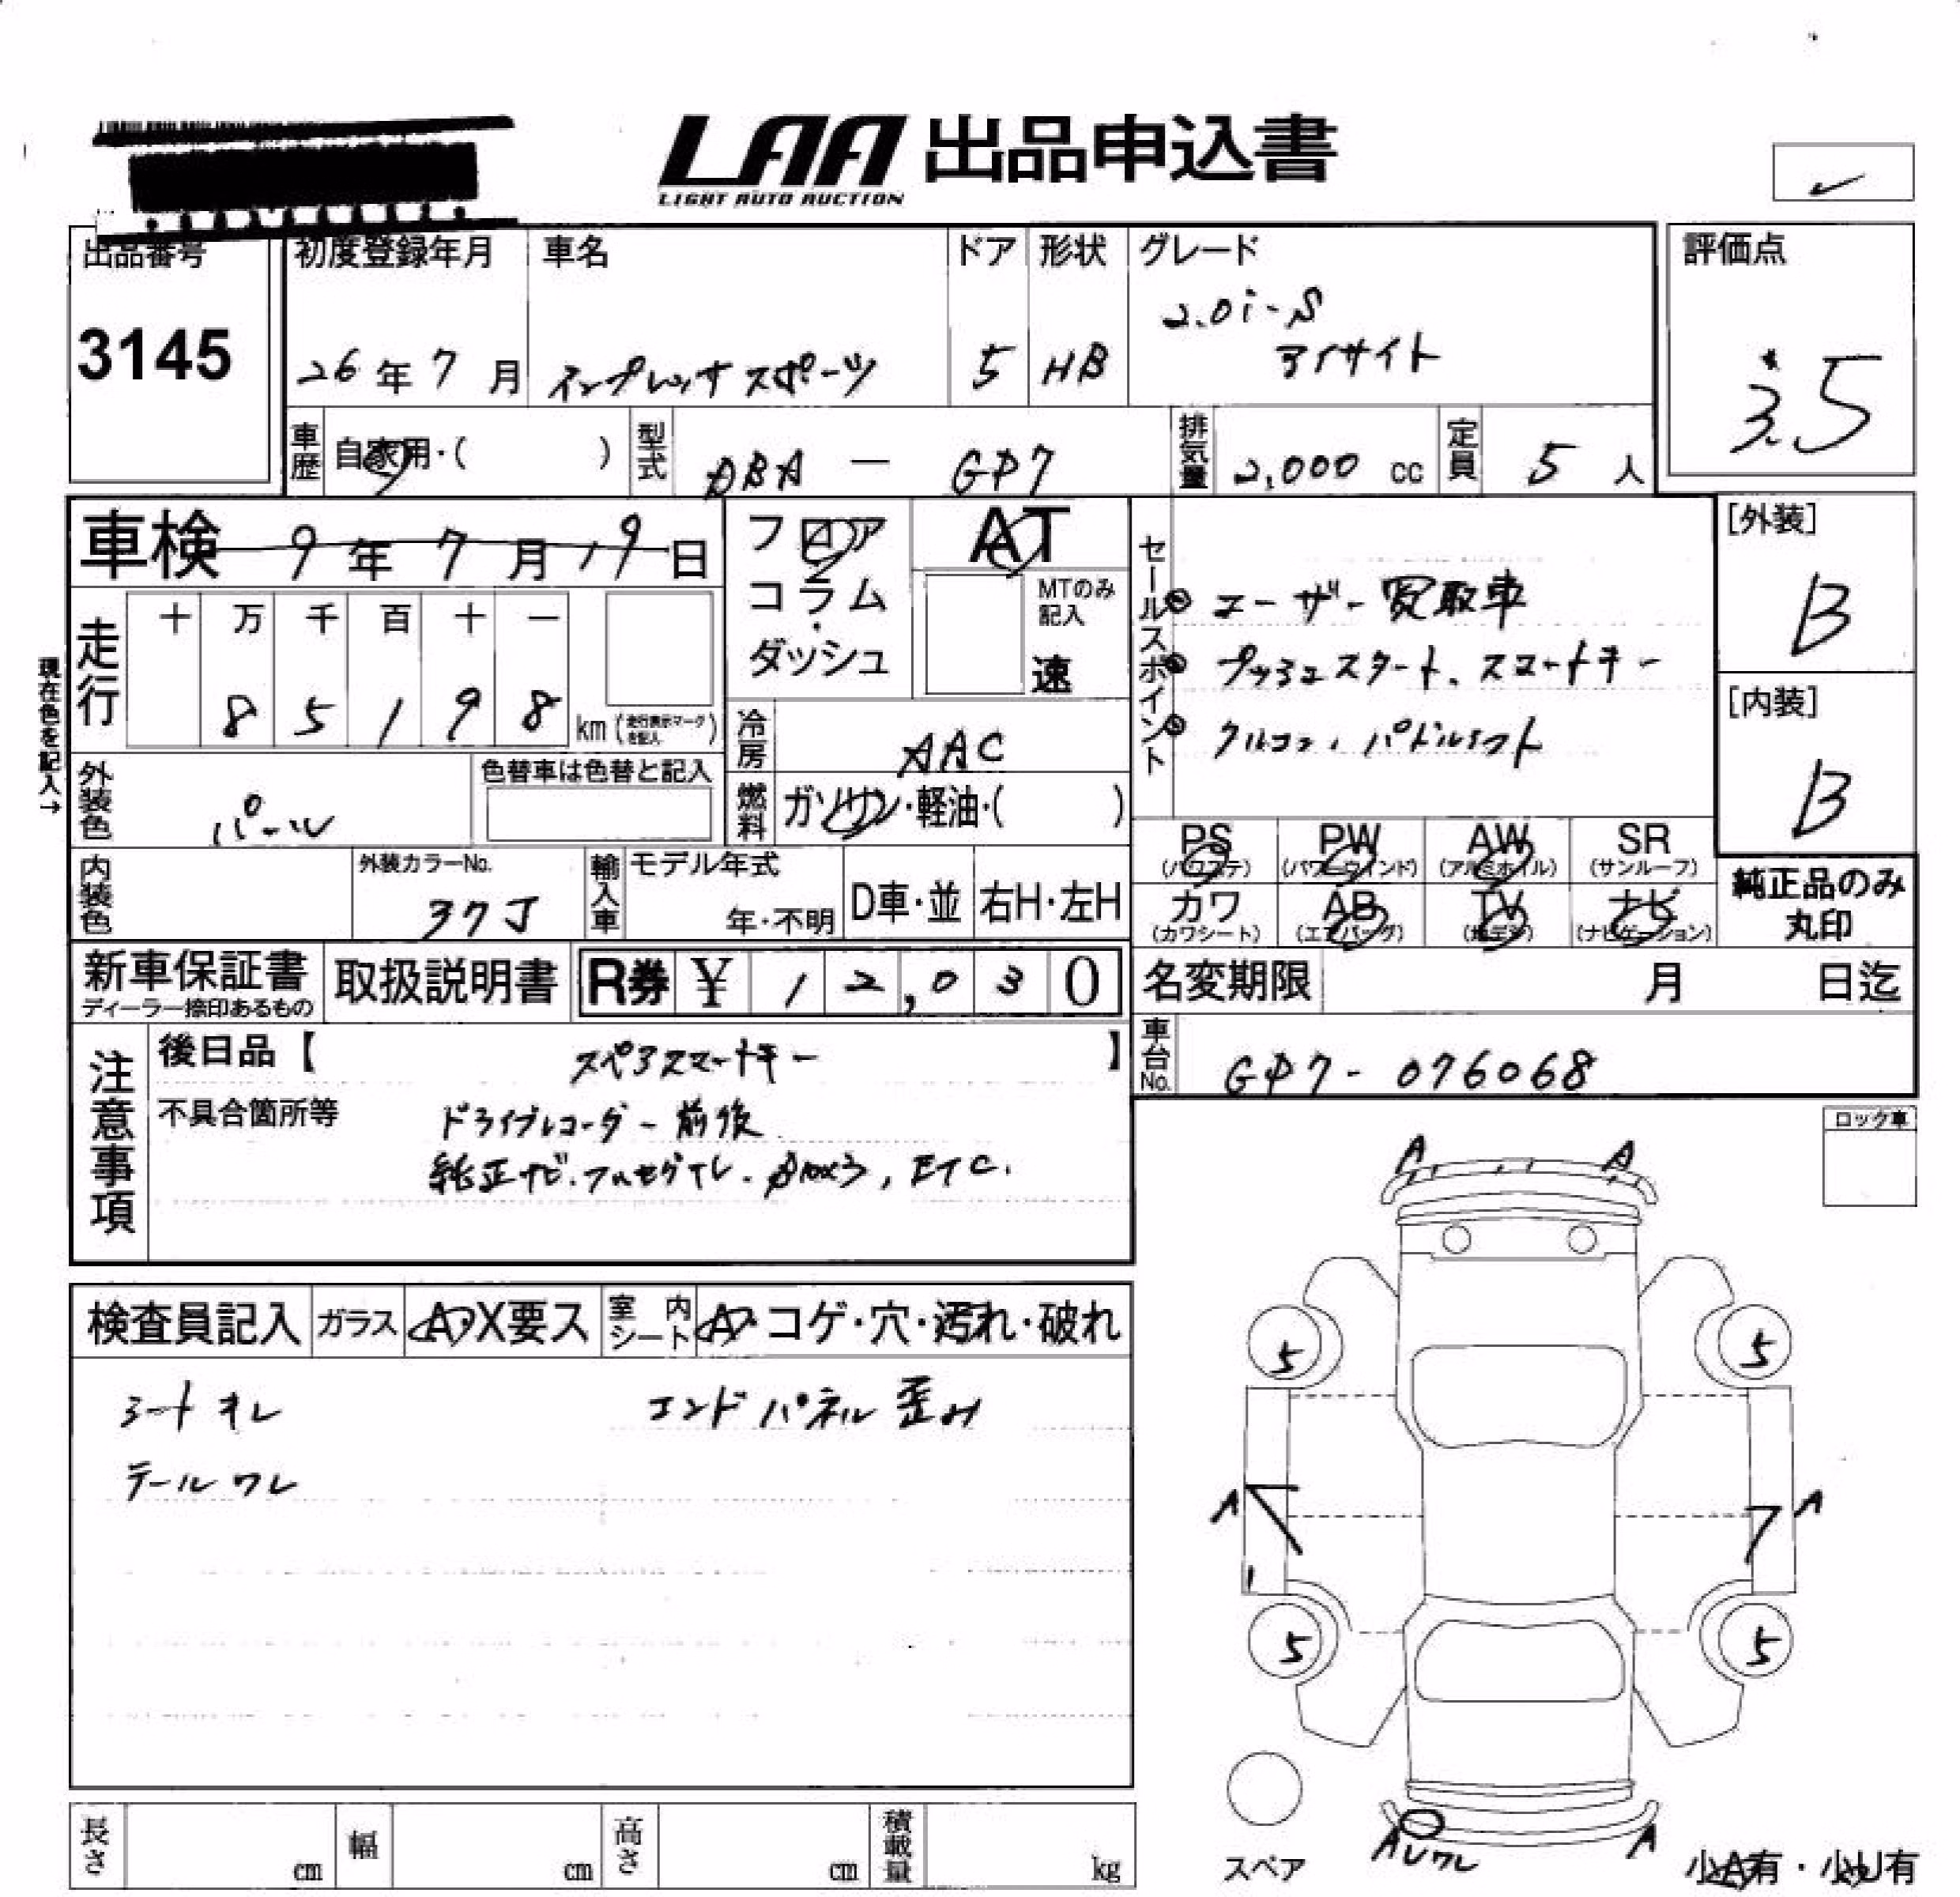 LAA 出品申込書
LIGHT AUTO AUCTION
出品番号
3145
初度登録年月
26年7月
車名
インプレッサスポーツ
ドア
5
形状
HB
グレード
2.0i-S
アイサイト
評価点
3.5
車歴
自家用・( )
型式
DBA - GP7
排気量
2,000 cc
定員
5 人
車検 9年7月19日
フロア
コラム
ダッシュ
AT
MTのみ
記入
速
走行
十 万 千 百 十 一
8 5 1 9 8 km (走行表示マークを記入)
現在色を記入→
冷房
AAC
燃料
ガソリン・軽油・( )
セールスポイント
ユーザー買取車
プッシュスタート、スマートキー
クルコン、パドルシフト
[外装]
B
[内装]
B
外装色
パール
色替車は色替と記入
内装色
外装カラーNo.
37J
輸入車
モデル年式
年・不明
D車・並
右H・左H
PS
(パワステ)
PW
(パワーウインド)
AW
(アルミホイル)
SR
(サンルーフ)
カワ
(カワシート)
AB
(エアバッグ)
TV
(地デジ)
ナビ
(ナビゲーション)
純正品のみ
丸印
新車保証書
ディーラー捺印あるもの
取扱説明書
R券 ¥ 12,030
名変期限 月 日迄
注意事項
後日品【 スペアスマートキー 】
不具合箇所等
ドライブレコーダー前後
純正ナビ.フルセグTV. , ETC.
車台No.
GP7-076068
ロック車
検査員記入
ガラス
A・X要ス
室内
シート
A・コゲ・穴・汚れ・破れ
シートオレ
エンドパネル歪み
テールワレ
A A
5 5
A A
5 5
スペア
AUワレ
A
小A有・小U有
長さ cm
幅 cm
高さ cm
積載量 kg